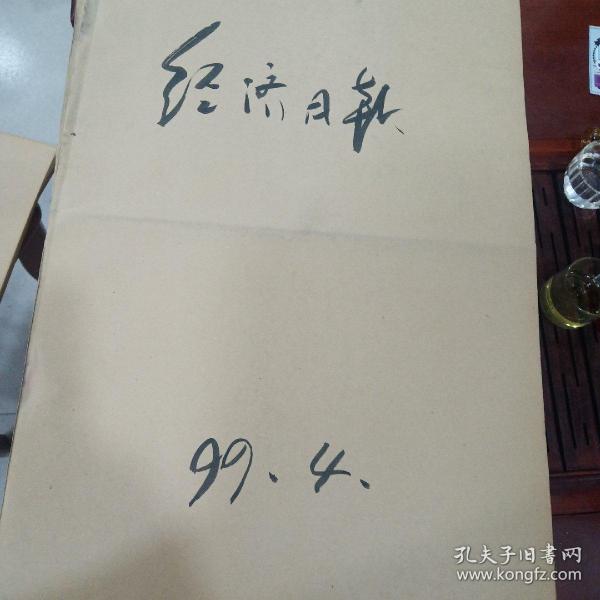 经济日报
99.4.
孔夫子旧書网
www.kongfz.com